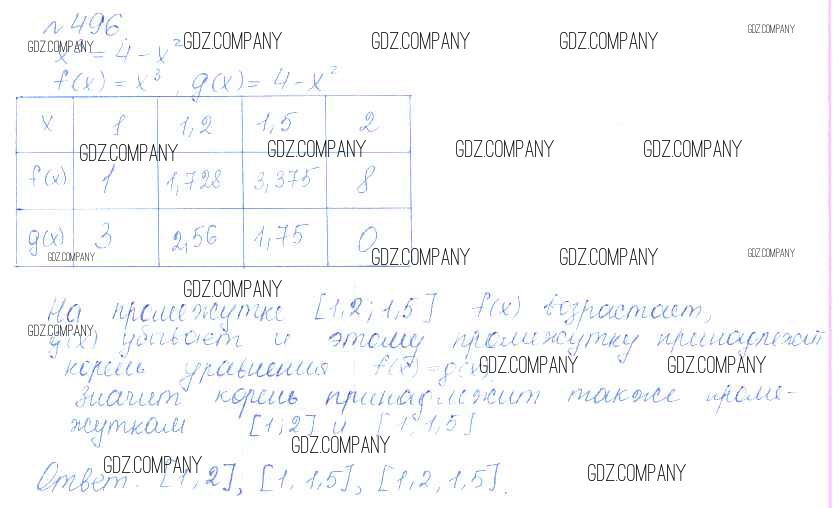 № 496.
x³ = 4 - x²
f(x) = x³, g(x) = 4 - x²
x 1 1,2 1,5 2
f(x) 1 1,728 3,375 8
g(x) 3 2,56 1,75 0
На промежутке [1,2; 1,5] f(x) возрастает,
g(x) убывает и этому промижутку принадлежит
корень уравнения f(x) = g(x)
значит корень принадлежит также проме-
жуткам [1; 2] и [1; 1,5]
Ответ: [1; 2], [1; 1,5], [1,2; 1,5].
GDZ.COMPANY GDZ.COMPANY GDZ.COMPANY GDZ.COMPANY GDZ.COMPANY
GDZ.COMPANY GDZ.COMPANY GDZ.COMPANY GDZ.COMPANY
GDZ.COMPANY GDZ.COMPANY GDZ.COMPANY GDZ.COMPANY
GDZ.COMPANY
GDZ.COMPANY GDZ.COMPANY GDZ.COMPANY
GDZ.COMPANY
GDZ.COMPANY GDZ.COMPANY